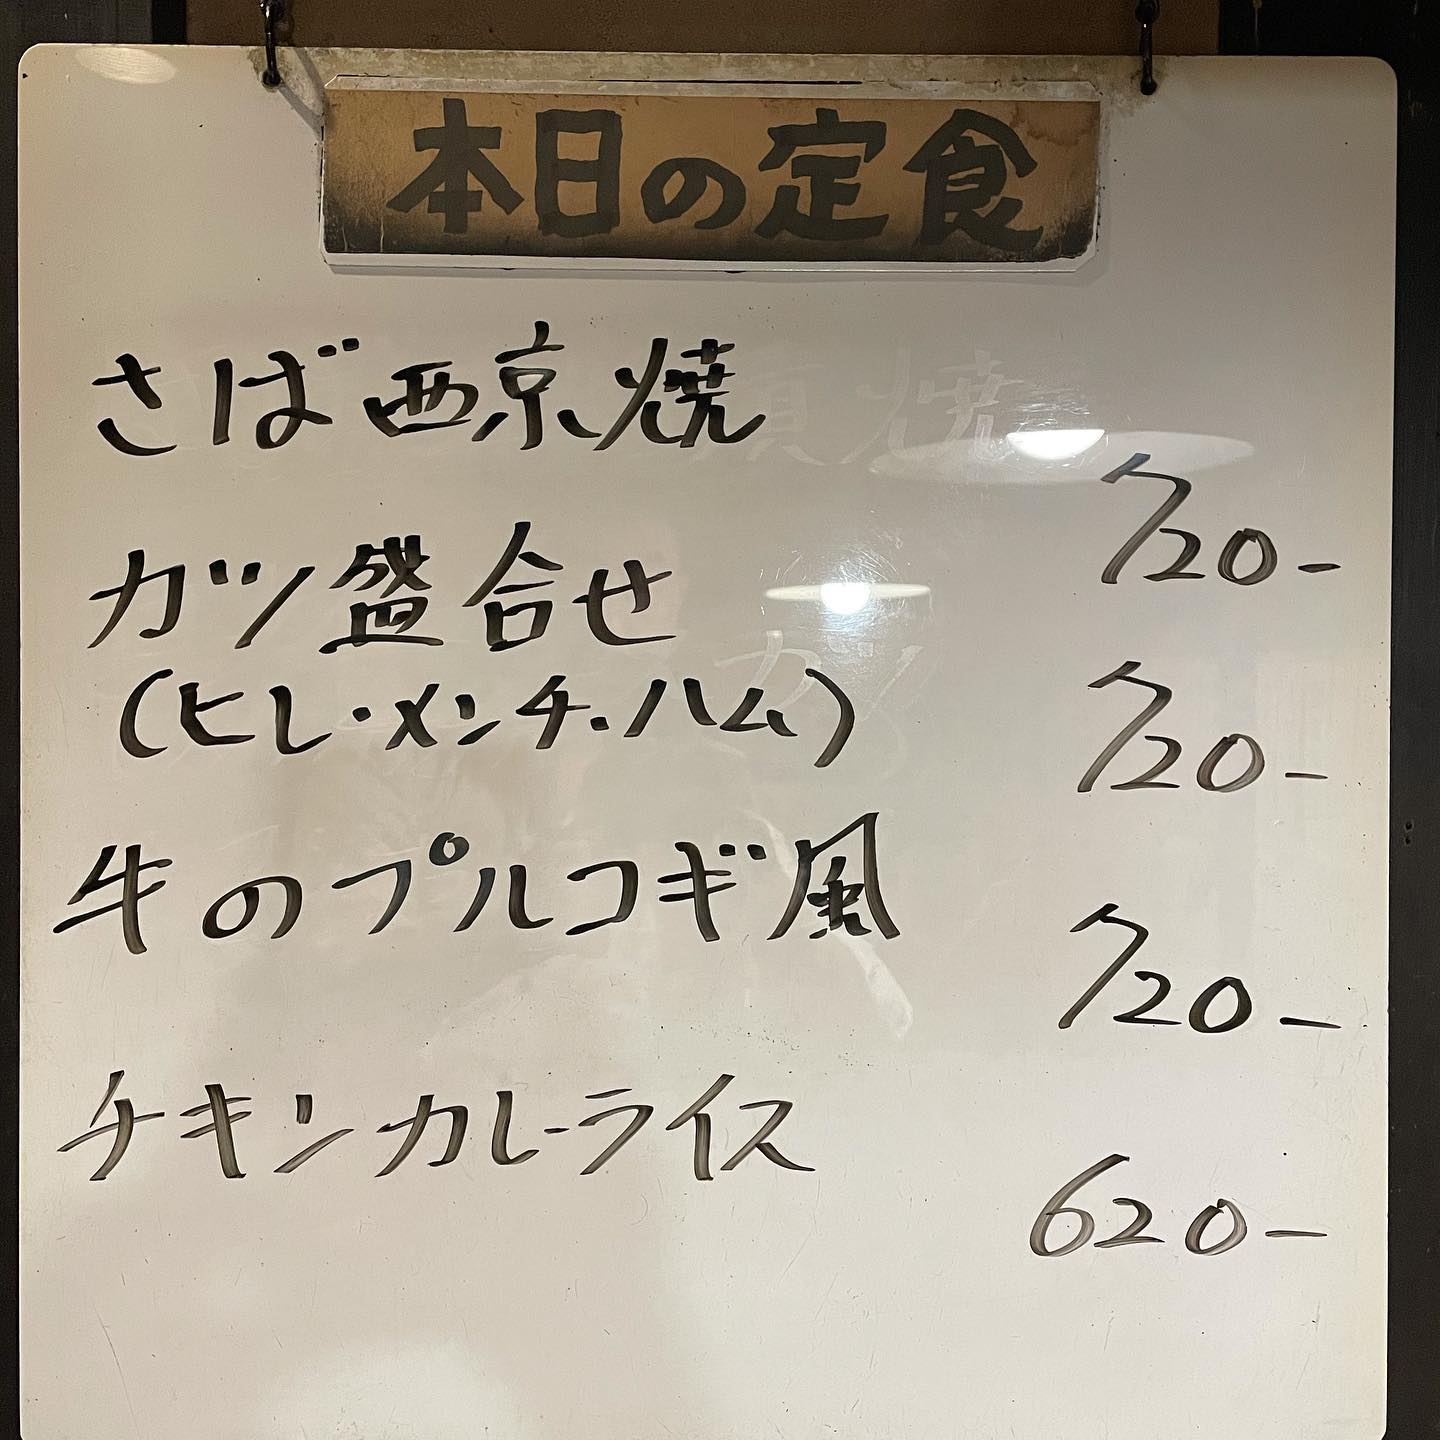 本日の定食
さば西京焼
720-
カツ盛合せ
(ヒレ・メンチ・ハム)
720-
牛のプルコギ風
720-
チキンカレーライス
620-